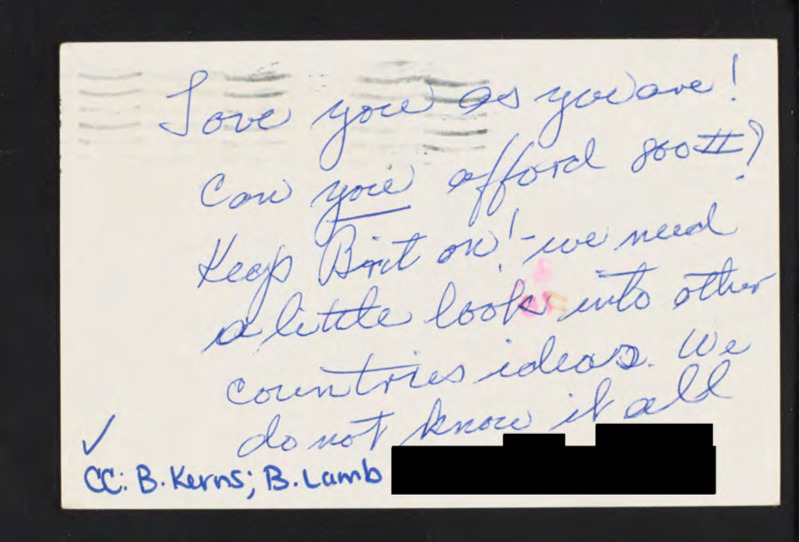 Love you as you are!
Can you afford 800#?
Keep Brit on! - we need
a little look into other
countries ideas. We
do not know it all
✓
CC: B. Kerns; B. Lamb